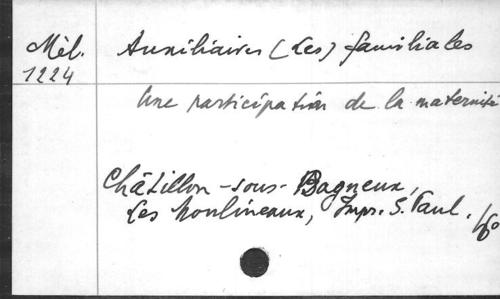 Mél.
1224
Auxiliaires (Les) familiales
Une participation de la maternité
Châtillon-sous-Bagneux,
Les Moulineaux, Impr. S. Paul.